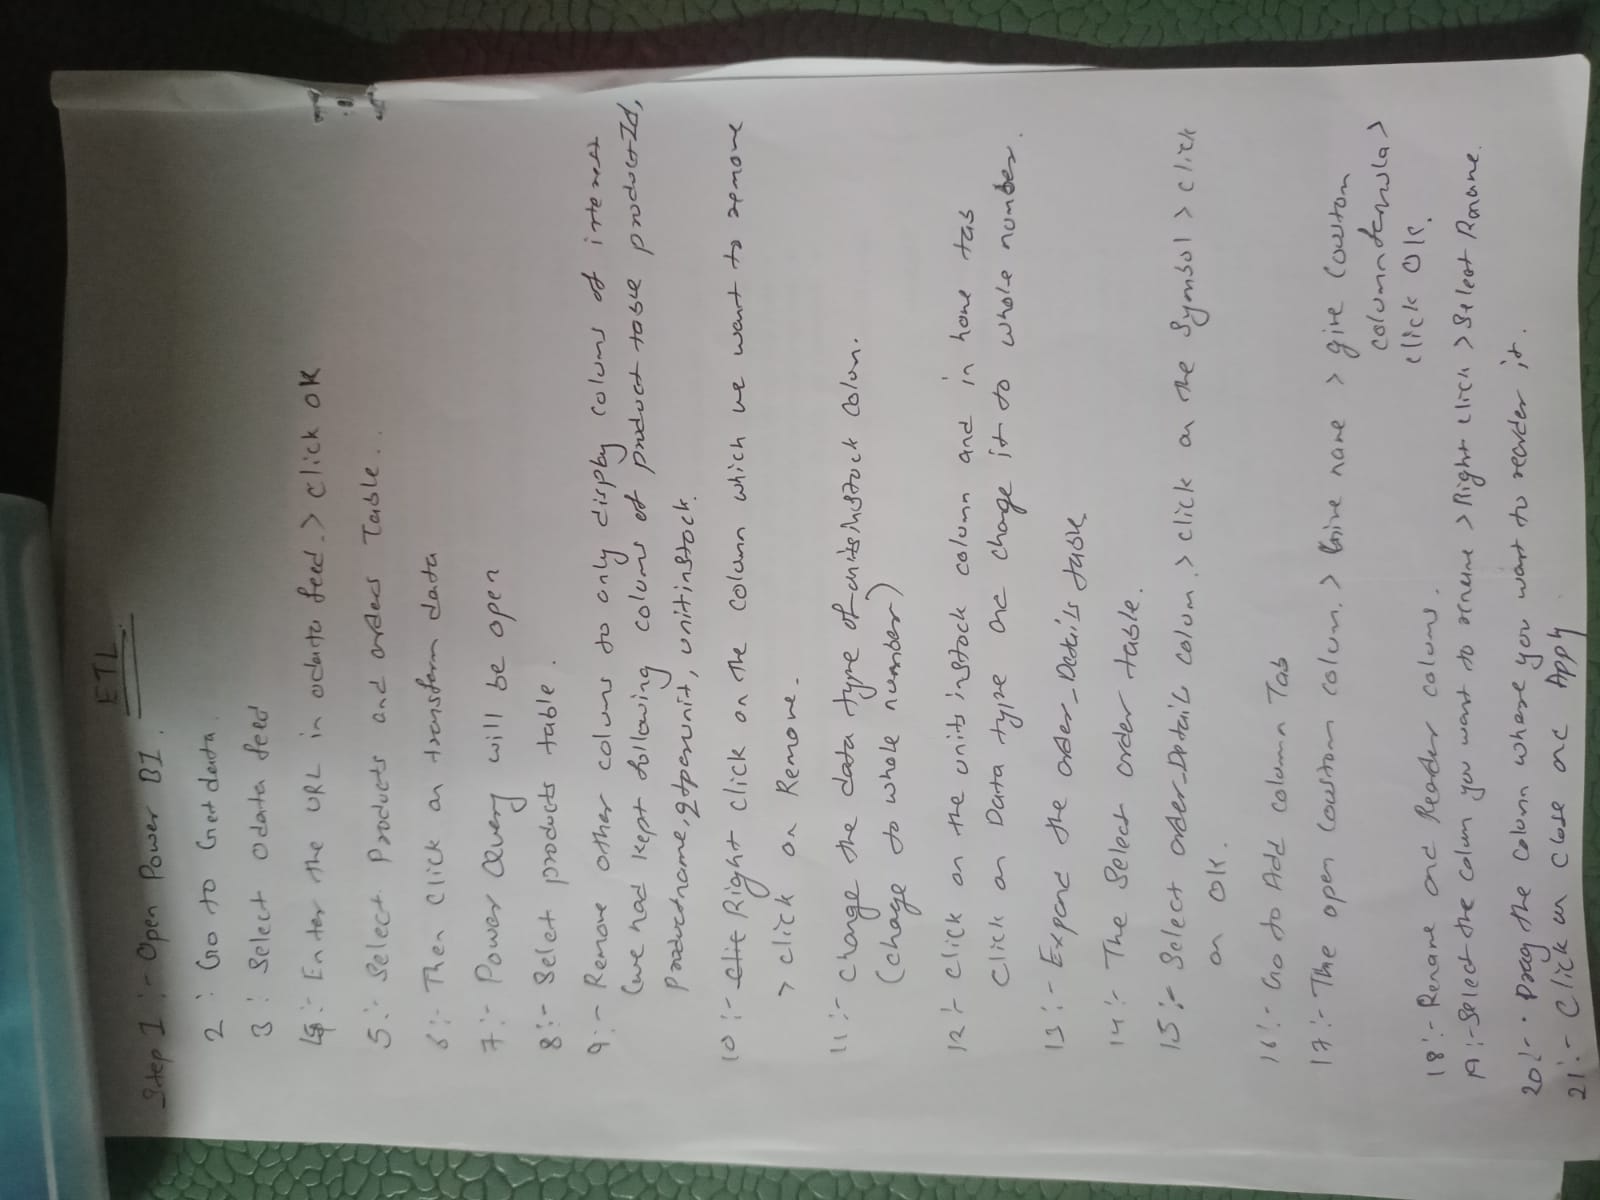 ETL
Step 1 :- Open Power BI.
2 : Go to Get data.
3 : Select odata feed
4 :- Enter the URL in odata feed. > click OK
5 :- Select Products and orders Table.
6 :- Then click on transform data
7 :- Power Query will be open
8 :- Select products table.
9 :- Remove other colums to only display colums of interest
(we had kept following colums of product table productId,
productname, qtperunit, unitinstock.
10 :- Right click on the column which we want to remove
> click on Remove.
11 :- change the data type of unitsinstock colum.
(change to whole number)
12 :- click on the unitsinstock column and in home tab
click on Data type and change it to whole number.
13 :- Expand the order_Details table
14 :- The Select order table.
15 :- Select order_Details colum. > click on the Symbol > click
on Ok.
16 :- Go to Add column Tab
17 :- The open Coustom colum. > Give name > give Coustom
column formula >
click Ok.
18 :- Rename and Reorder colums.
A :- Select the colum you want to rename > Right click > Select Rename.
20 :- Drag the colum where you want to reorder it.
21 :- Click on close and Apply